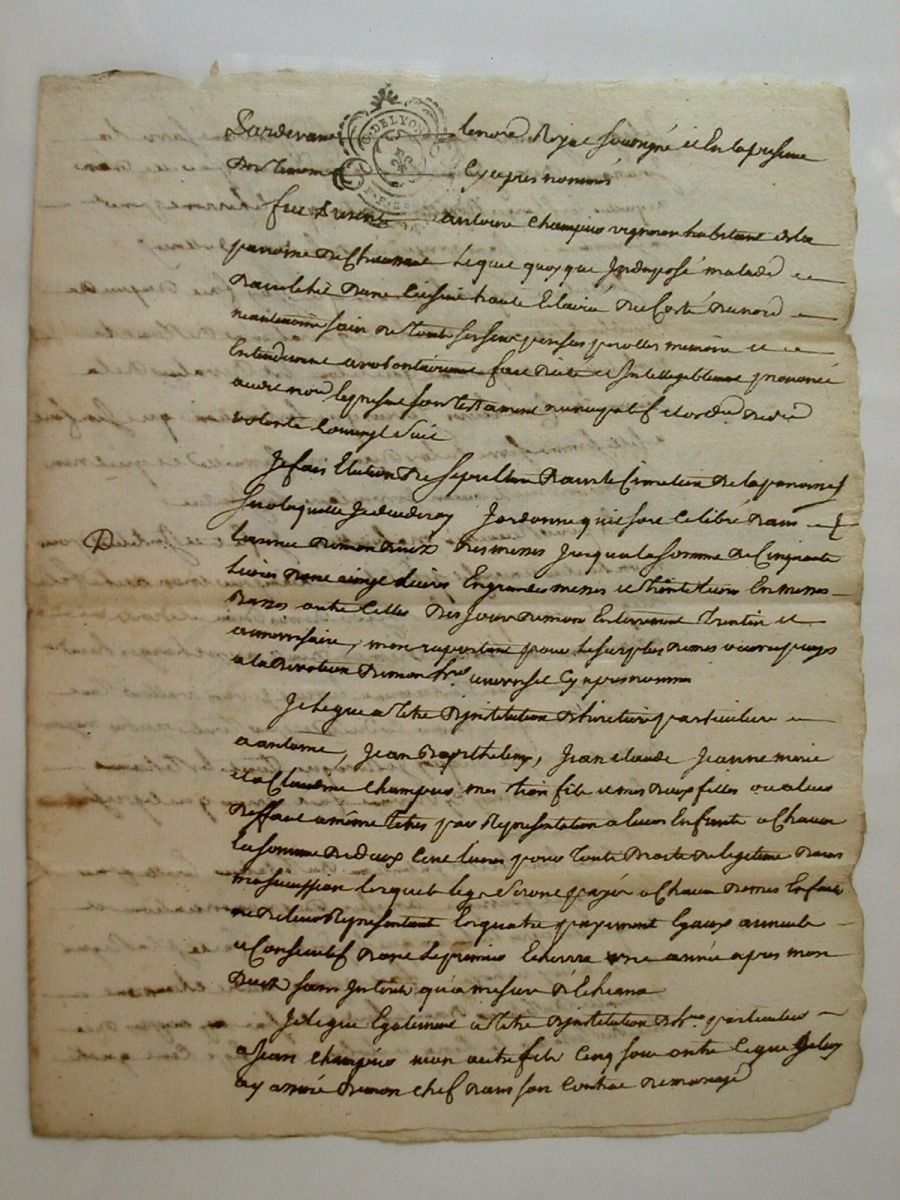 Pardevant le no.re Royal soussigné et En la presence
Des temoins Cy apres nommés
fut Present antoine Champuis vigneron habitant de la
paroisse de Lequel quoy que Indisposé malade et
Dans le lit Dans Cuisine haute Eclairé du Costé du nord
neantmoins sain de tous ses sens pensées parolles memoire et
Entendement a volontairement fait Dicté et Intelligiblement prononcé
audit no.re le present son testament nuncupatif et ordre de der.e
volonté Comme s'Suit
Je fais Election De sepulture Dans le Cimetiere De la paroisse
Sur laquelle Je decederay Jordonne quil soit Celebré Dans
Lannée De mon Deces Des messes Jusqua la somme de Cinquante
Livres Dont vingt Livres En grandes messes et trente livres En messes
Basses outre Celles Des Jours De mon Enterrement trentin et
anniversaire, men raportant pour le surplus De mes œuvres pies
a la Devotion De mon her. universel Cy apres nommé
Je legue a titre D'institution D'heritier particuliere
a antoine, Jean Barthelemy, Jean Claude Jeanne marie
et Claudine Champuis mes trois fils et mes Deux filles ou a leur
Deffaut a même titre par Representation a leurs Enfants a Chacun
La somme De deux Cent Livres pour toute Droits De legitime Dans
ma succession lesquels legs seront payés a Chacun De mes Enfants
ou De leurs Representant En quatre payement Egaux annuels
et Consecutifs Dont le premier Echerra une année apres mon
Deces sans Interets qu'a mesure D'Echeance
Je legue Egalement a titre D'institution D'her. particuliere
a Jean Champuis mon autre fils Cinq sous outre Ce que Je luy
ay donné De mon Chef Dans son Contrat De mariage
G. DE LYON